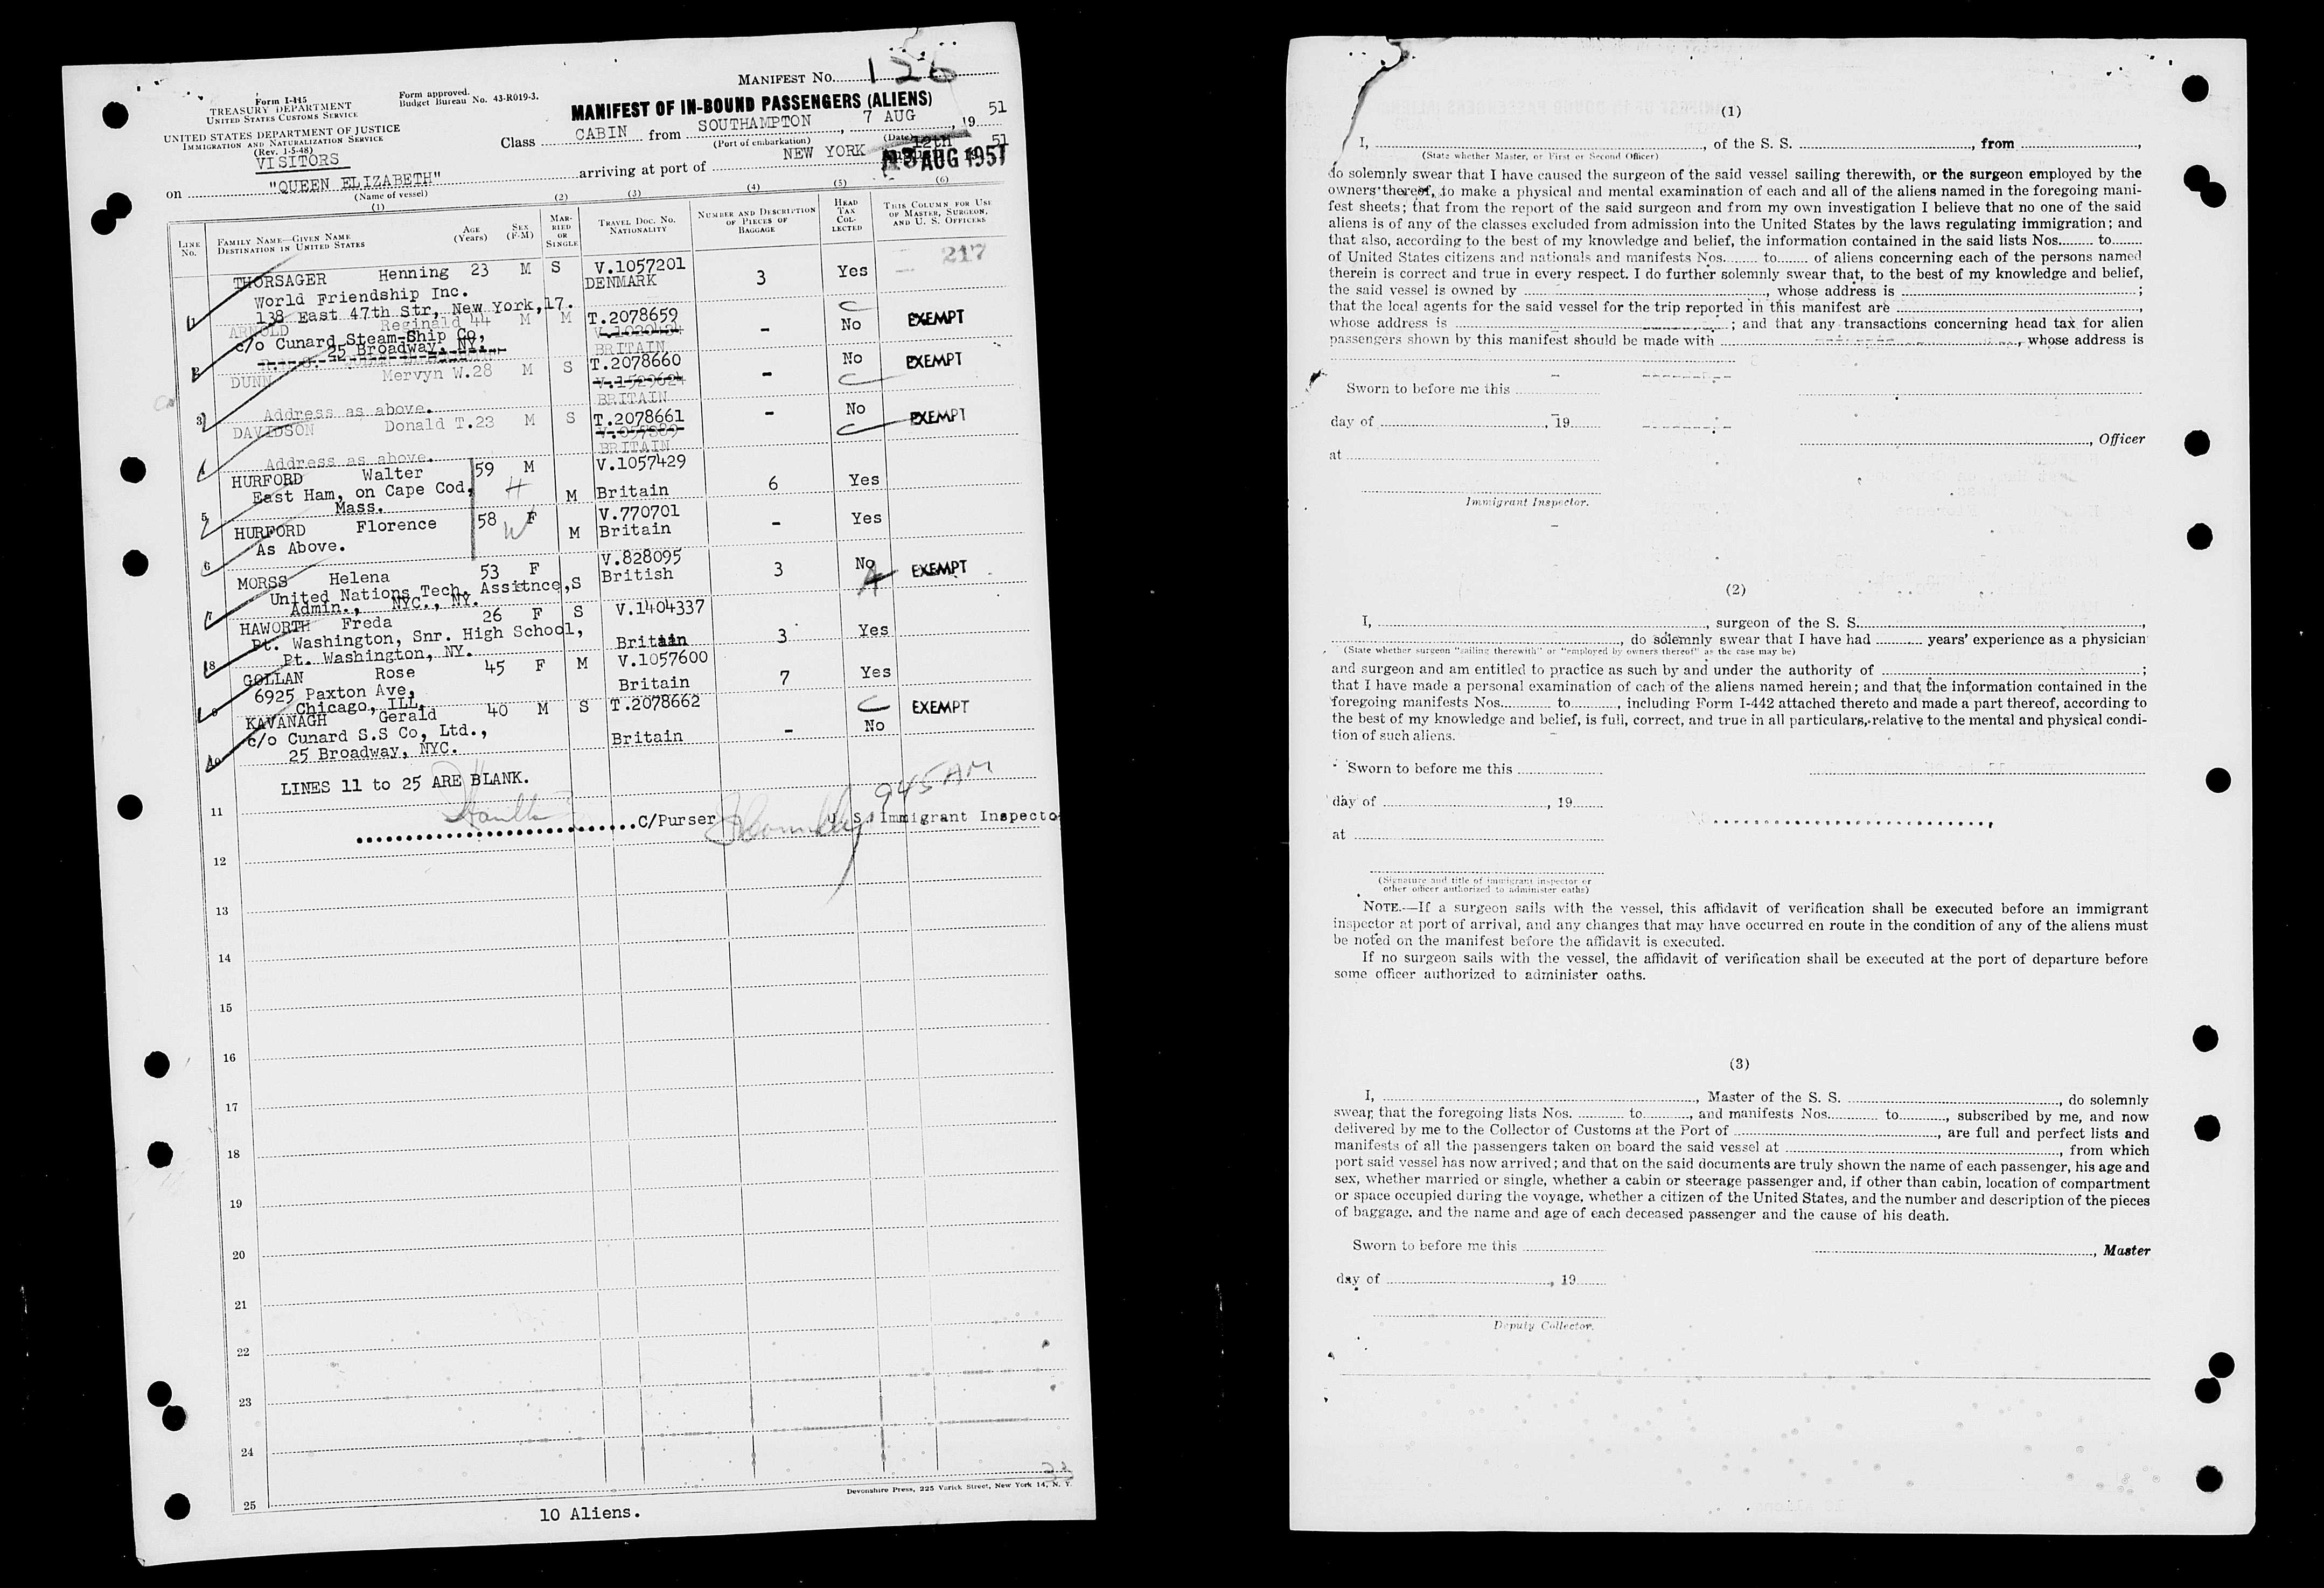 MANIFEST NO. 126
Form I-415
TREASURY DEPARTMENT
UNITED STATES CUSTOMS SERVICE
Form approved.
Budget Bureau No. 43-R019-3.
MANIFEST OF IN-BOUND PASSENGERS (ALIENS)
UNITED STATES DEPARTMENT OF JUSTICE
IMMIGRATION AND NATURALIZATION SERVICE
(Rev. 1-5-48)
VISITORS
Class CABIN from SOUTHAMPTON, 7 AUG, 19 51
(Port of embarkation) (Date)
on "QUEEN ELIZABETH" arriving at port of NEW YORK 12th 51
AUG 1951
(Name of vessel)
(1) (2) (3) (4) (5) (6)
LINE No. FAMILY NAME—GIVEN NAME DESTINATION IN UNITED STATES AGE (Years) SEX (F-M) MARRIED OR SINGLE TRAVEL DOC. NO. NATIONALITY NUMBER AND DESCRIPTION OF PIECES OF BAGGAGE HEAD TAX COLLECTED THIS COLUMN FOR USE OF MASTER, SURGEON, AND U. S. OFFICERS
217
THORSAGER Henning 23 M S V.1057201 3 Yes
DENMARK
World Friendship Inc.
1 138 East 47th Str, New York,17.
ARNOLD Reginald 44 M M T.2078659 - No EXEMPT
c/o Cunard Steam-Ship Co, BRITAIN
2 25 Broadway, NY.
DUNN Mervyn W.28 M S T.2078660 - No EXEMPT
V.1529624
BRITAIN
3 Address as above.
DAVIDSON Donald T.23 M S T.2078661 - No EXEMPT
V.057389
BRITAIN
4 Address as above.
HURFORD Walter 59 M V.1057429
East Ham, on Cape Cod, H M Britain 6 Yes
5 Mass.
HURFORD Florence 58 F V.770701 - Yes
W M Britain
6 As Above.
MORSS Helena 53 F V.828095 3 No EXEMPT
United Nations Tech. Assitnce, S British
7 Admin., NYC., NY.
HAWORTH Freda 26 F S V.1404337
Pt. Washington, Snr. High School, Britain 3 Yes
8 Pt. Washington, NY.
GOLLAN Rose 45 F M V.1057600
6925 Paxton Ave, Britain 7 Yes
9 Chicago, ILL.
KAVANAGH Gerald 40 M S T.2078662 C EXEMPT
c/o Cunard S.S Co, Ltd., Britain - No
10 25 Broadway, NYC.
LINES 11 to 25 ARE BLANK.
945 AM
11
C/Purser U S. Immigrant Inspecto
12
13
14
15
16
17
18
19
20
21
22
23
24
25
Devonshire Press, 225 Varick Street, New York 14, N. Y.
10 Aliens.
(1)
I, , of the S. S. , from ,
(State whether Master, or First or Second Officer)
do solemnly swear that I have caused the surgeon of the said vessel sailing therewith, or the surgeon employed by the
owners thereof, to make a physical and mental examination of each and all of the aliens named in the foregoing mani-
fest sheets; that from the report of the said surgeon and from my own investigation I believe that no one of the said
aliens is of any of the classes excluded from admission into the United States by the laws regulating immigration; and
that also, according to the best of my knowledge and belief, the information contained in the said lists Nos. to
of United States citizens and nationals and manifests Nos. to of aliens concerning each of the persons named
therein is correct and true in every respect. I do further solemnly swear that, to the best of my knowledge and belief,
the said vessel is owned by , whose address is ;
that the local agents for the said vessel for the trip reported in this manifest are ,
whose address is ; and that any transactions concerning head tax for alien
passengers shown by this manifest should be made with , whose address is
Sworn to before me this
day of , 19
, Officer
at
Immigrant Inspector.
(2)
I, , surgeon of the S. S. ,
, do solemnly swear that I have had years' experience as a physician
(State whether surgeon "sailing therewith" or "employed by owners thereof" as the case may be)
and surgeon and am entitled to practice as such by and under the authority of ;
that I have made a personal examination of each of the aliens named herein; and that the information contained in the
foregoing manifests Nos. to , including Form I-442 attached thereto and made a part thereof, according to
the best of my knowledge and belief, is full, correct, and true in all particulars, relative to the mental and physical condi-
tion of such aliens.
Sworn to before me this
day of , 19
at
(Signature and title of immigrant inspector or
other officer authorized to administer oaths)
NOTE.—If a surgeon sails with the vessel, this affidavit of verification shall be executed before an immigrant
inspector at port of arrival, and any changes that may have occurred en route in the condition of any of the aliens must
be noted on the manifest before the affidavit is executed.
If no surgeon sails with the vessel, the affidavit of verification shall be executed at the port of departure before
some officer authorized to administer oaths.
(3)
I, , Master of the S. S. , do solemnly
swear that the foregoing lists Nos. to , and manifests Nos. to , subscribed by me, and now
delivered by me to the Collector of Customs at the Port of , are full and perfect lists and
manifests of all the passengers taken on board the said vessel at , from which
port said vessel has now arrived; and that on the said documents are truly shown the name of each passenger, his age and
sex, whether married or single, whether a cabin or steerage passenger and, if other than cabin, location of compartment
or space occupied during the voyage, whether a citizen of the United States, and the number and description of the pieces
of baggage, and the name and age of each deceased passenger and the cause of his death.
Sworn to before me this
, Master
day of , 19
Deputy Collector.